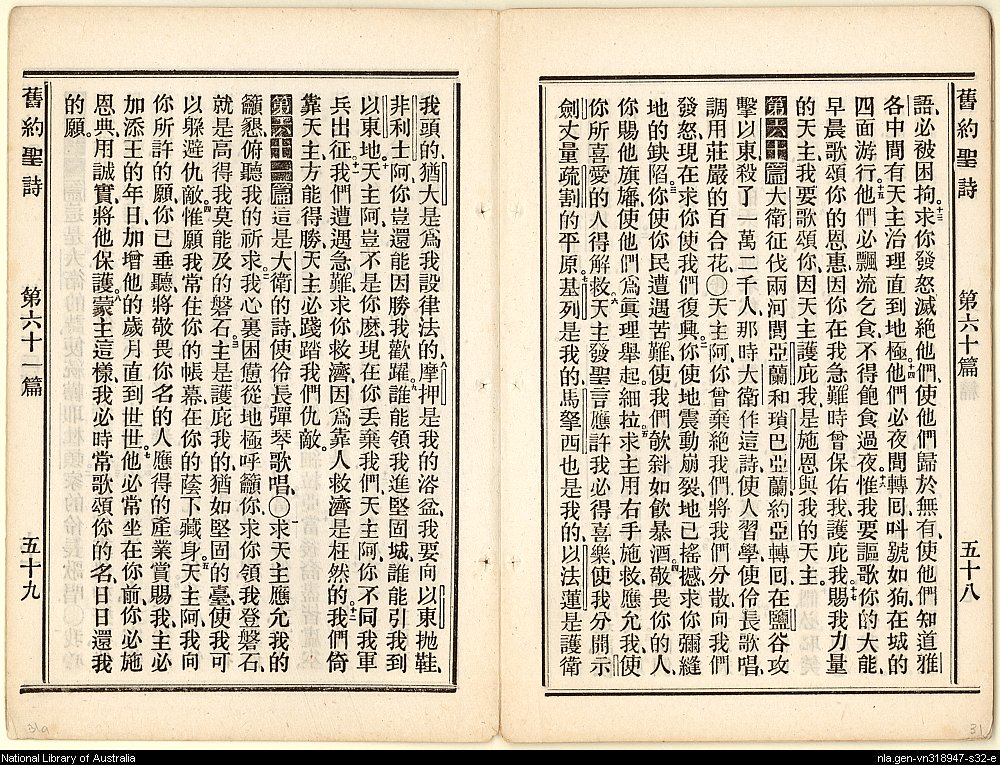 舊約聖詩 第六十篇 五十八
語必被困拘求你發怒滅絕他們使他們歸於無有使他們知道雅
各中間有天主治理直到地極他們必夜間轉回叫號如狗在城的
四面游行他們必飄流乞食不得飽食過夜惟我要謳歌你的大能
早晨歌頌你的恩惠因你在我急難時曾保佑我護庇我賜我力量
的天主我要歌頌你因天主護庇我是施恩與我的天主
第六十篇大衛征伐兩河間亞蘭和瑣巴亞蘭約亞轉回在鹽谷攻
擊以東殺了一萬二千人那時大衛作這詩使人習學使伶長歌唱
調用莊嚴的百合花○天主阿你曾棄絕我們將我們分散向我們
發怒現在求你使我們復興你使地震動崩裂地已搖撼求你彌縫
地的缺陷你使你民遭遇苦難使我們欹斜如飲暴酒敬畏你的人
你賜他旗旛使他們爲眞理舉起細拉求主用右手施救應允我使
你所喜愛的人得解救天主發聖言應許我必得喜樂使我分開示
劍丈量疏割的平原基列是我的馬拏西也是我的以法蓮是護衛
我頭的猶大是爲我設律法的摩押是我的浴盆我要向以東抛鞋
非利士阿你豈還能因勝我歡躍誰能領我進堅固城誰能引我到
以東地天主阿豈不是你麽現在你丢棄我們天主阿你不同我軍
兵出征我們遭遇急難求你救濟因爲靠人救濟是枉然的我們倚
靠天主方能得勝天主必踐踏我們仇敵
第六十一篇這是大衛的詩使伶長彈琴歌唱○求天主應允我的
籲懇俯聽我的祈求我心裏困憊從地極呼籲你求你領我登磐石
就是高得我莫能及的磐石主是護庇我的猶如堅固的臺使我可
以躱避仇敵惟願我常住你的帳幕在你的蔭下藏身天主阿我向
你所許的願你已垂聽將敬畏你名的人應得的產業賞賜我主必
加添王的年日加增他的歲月直到世世他必常坐在你前你必施
恩典用誠實將他保護蒙主這樣我必時常歌頌你的名日日還我
的願
舊約聖詩 第六十一篇 五十九
31a
31
National Library of Australia
nla.gen-vn318947-s32-e